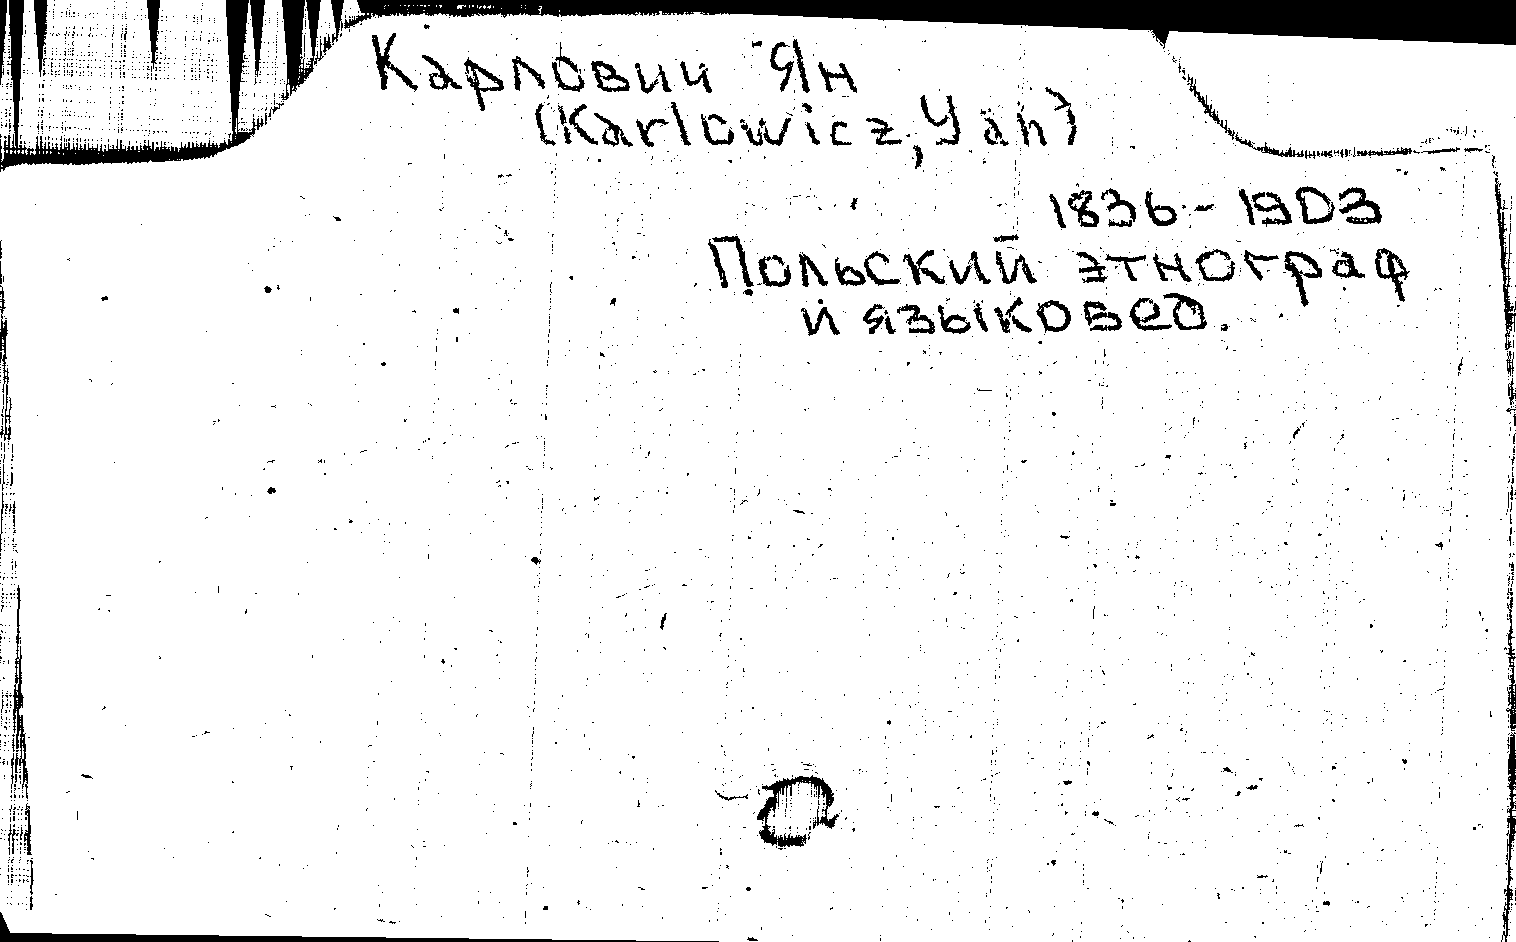 Карлович Ян
(Karlowicz, Yan)
1836 - 1903
Польский этнограф
и языковед.